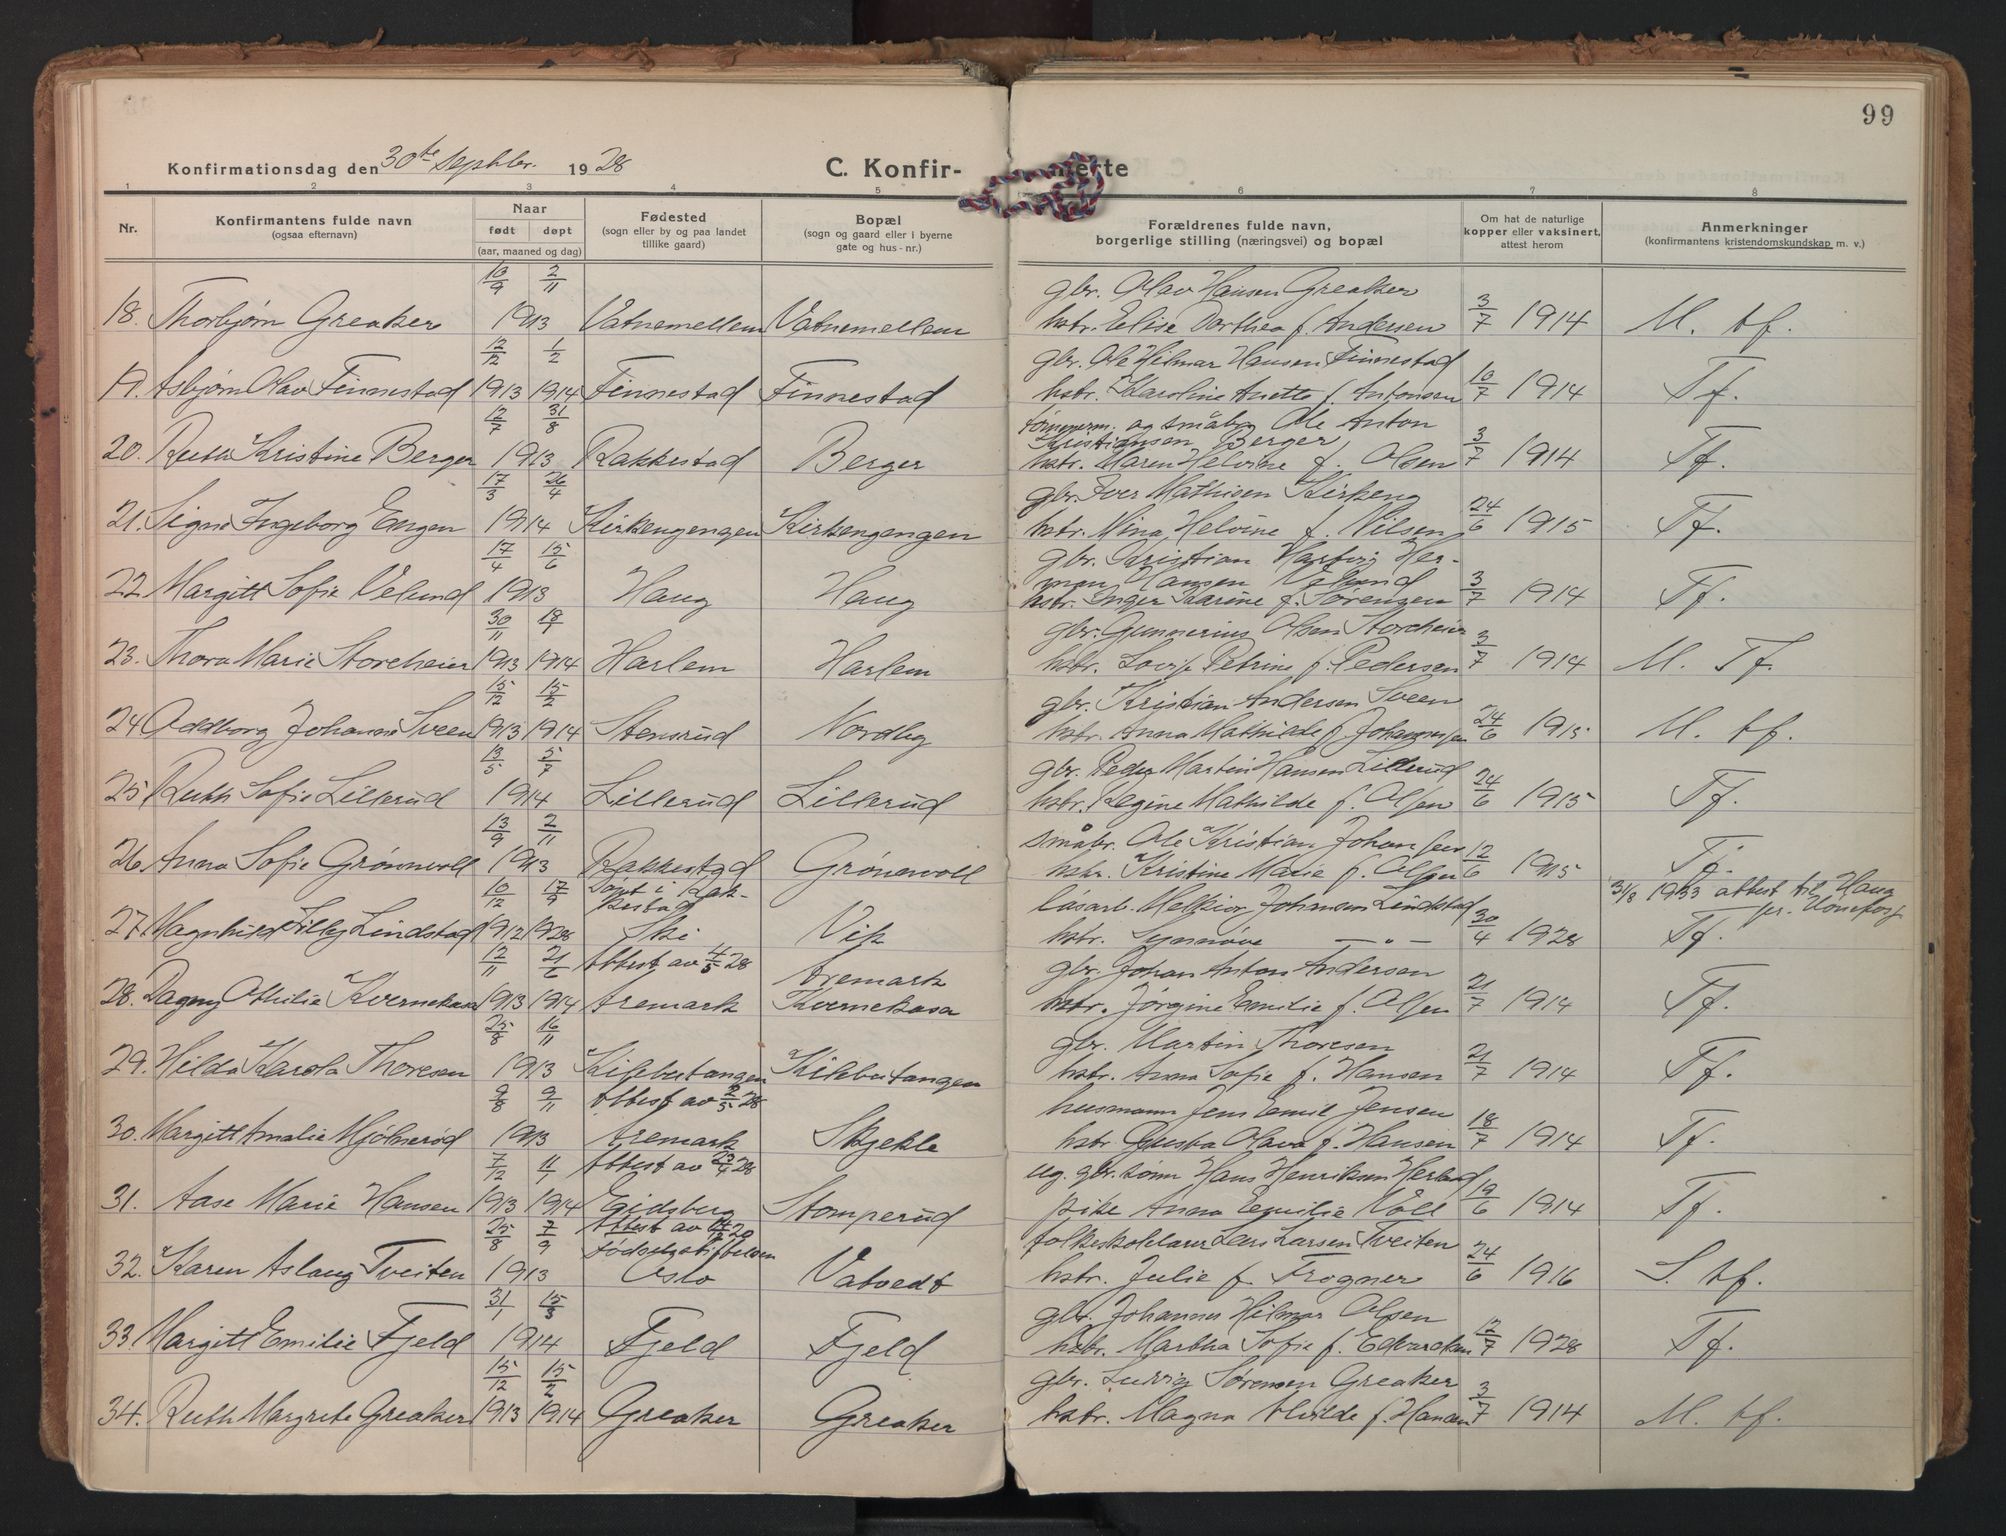 99
Konfirmationsdag den 30te Septbr. 1928 C. Konfir- merte
1 2 3 4 5 6 7 8
Nr. Konfirmantens fulde navn (ogsaa efternavn) Naar født døpt (aar, maaned og dag) Fødested (sogn eller by og paa landet tillike gaard) Bopæl (sogn og gaard eller i byerne gate og hus-nr.) Forældrenes fulde navn, borgerlige stilling (næringsvei) og bopæl Om hat de naturlige kopper eller vaksinert, attest herom Anmerkninger (konfirmantens kristendomskundskap m. v.)
10/9 2/11 gbr. Olav Hansen Greaker
18. Thorbjørn Greaker 1913 Vatnemellem Vatnemellem hstr. Elise Dorthea f. Andersen 3/7 1914 M. tf.
12/12 1/2 gbr. Ole Hilmar Hansen Finnestad
19. Asbjørn Olav Finnestad 1913 1914 Finnestad Finnestad hstr. Karoline Anette f. Antonsen 10/7 1914 Tf.
12/7 31/8 tømmerm. og småbr. Ole Anton
Kristiansen Berger
20. Ruth Kristine Berger 1913 Rakkestad Berger hstr. Maren Helvine f. Olsen 3/7 1914 Tf.
17/3 26/4 gbr. Iver Mathisen Kirkeng
21. Signe Ingeborg Engen 1914 Kirkengengen Kirkengengen hstr. Nina Helvine f. Nilsen 24/6 1915 Tf.
17/4 15/6 gbr. Kristian Hartvig Her-
man Hansen Velund
22. Margitt Sofie Velund 1913 Haug Haug hstr. Inger Karine f. Sørensen 3/7 1914 Tf.
30/11 18/1 gbr. Gunnerius Olsen Storeheier
23. Thora Marie Storeheier 1913 1914 Harlem Harlem hstr. Lovise Petrine f. Pedersen 3/7 1914 M. Tf.
15/12 15/2 gbr. Kristian Andersen Sveen
24 Oddborg Johanne Sveen 1913 1914 Stensrud Nordby hstr. Anna Mathilde f. Johannssen 24/6 1915 M. tf.
13/5 5/7 gbr. Peder Martin Hansen Lillerud
25 Ruth Sofie Lillerud 1914 Lillerud Lillerud hstr. Regine Mathilde f. Olsen 24/6 1915 Tf.
13/9 2/11 småbr. Ole Kristian Johansen
26. Anna Sofie Grønnvoll 1913 Rakkestad Grønevoll hstr. Kristine Marie f. Olsen 12/6 1915 Tf.
10/12 17/9 Døpt i Rak-
kestad løsarb. Melkior Johansen Lindstad 31/8 1933 attest til Haug
27. Magnhild Lilly Lindstad 1912 1928 Ski Vik hstr. Synnøve — " — 30/4 1928 Tf.
12/11 21/6 Attest av 4/5 28 Aremark gbr. Johan Anton Andersen
28. Dagny Othilie Kvernekasa 1913 1914 Aremark Kvernekasa hstr. Jørgine Emilie f. Olsen 21/7 1914 Tf.
25/8 16/11 gbr. Martin Thoresen
29. Hilda Karola Thoresen 1913 Kilebutangen Kilebutangen hstr. Anna Sofie f. Hansen 21/7 1914 Tf.
9/8 9/11 Attest av 2/5 28 husmann Jens Emil Jensen
30. Margitt Amalie Mjølnerød 1913 Aremark Skjekle hstr. Gusta Olava f. Hansen 18/7 1914 Tf.
7/12 11/1 Attest av 23/4 28 ug. gbr. sønn Hans Henriksen Herland
31. Aase Marie Hansen 1913 1914 Eidsberg Stomperud pike Anna Emilie Voll 19/6 1914 Tf.
25/8 7/9 Attest av
Fødselsstiftelsen folkeskolelærer Lars Larsen Tveiten
32. Karen Aslaug Tveiten 1913 Oslo Vatvedt hstr. Julie f. Frogner 24/6 1916 S. tf.
31/1 15/3 gbr. Johannes Hilmar Olsen
33 Margitt Emilie Fjeld 1914 Fjeld Fjeld hstr. Martha Sofie f. Edvardsen 12/7 1928 Tf.
15/12 15/2 gbr. Ludvig Sørensen Greaker
34. Ruth Margrete Greaker 1913 1914 Greaker Greaker hstr. Magna Alvilde f. Hansen 3/7 1914 M. tf.